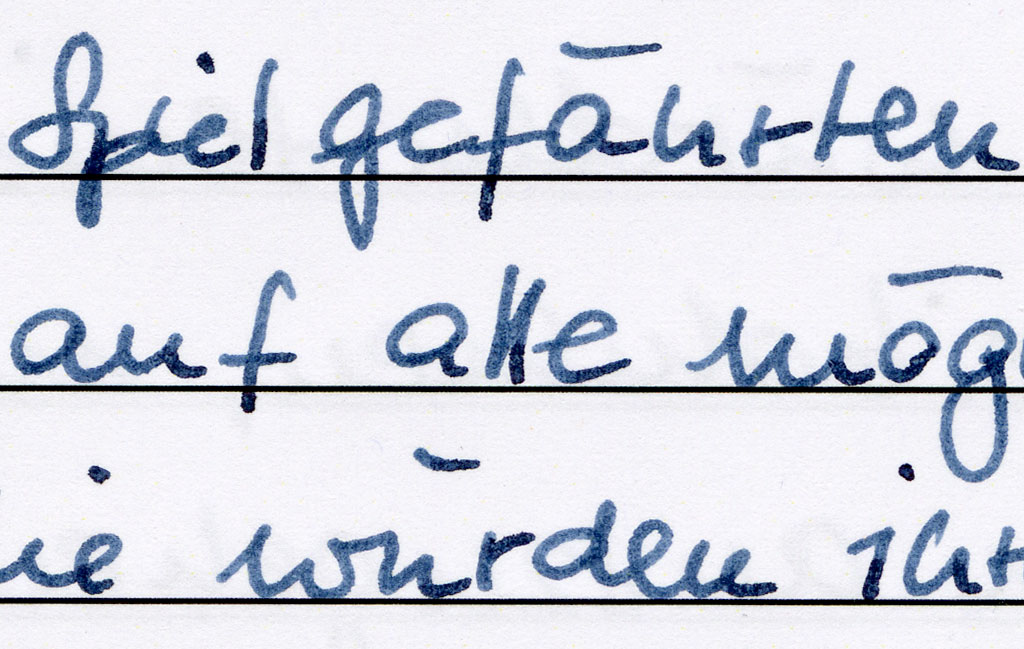 Spielgefährten
auf alle mög
ie würden ihr